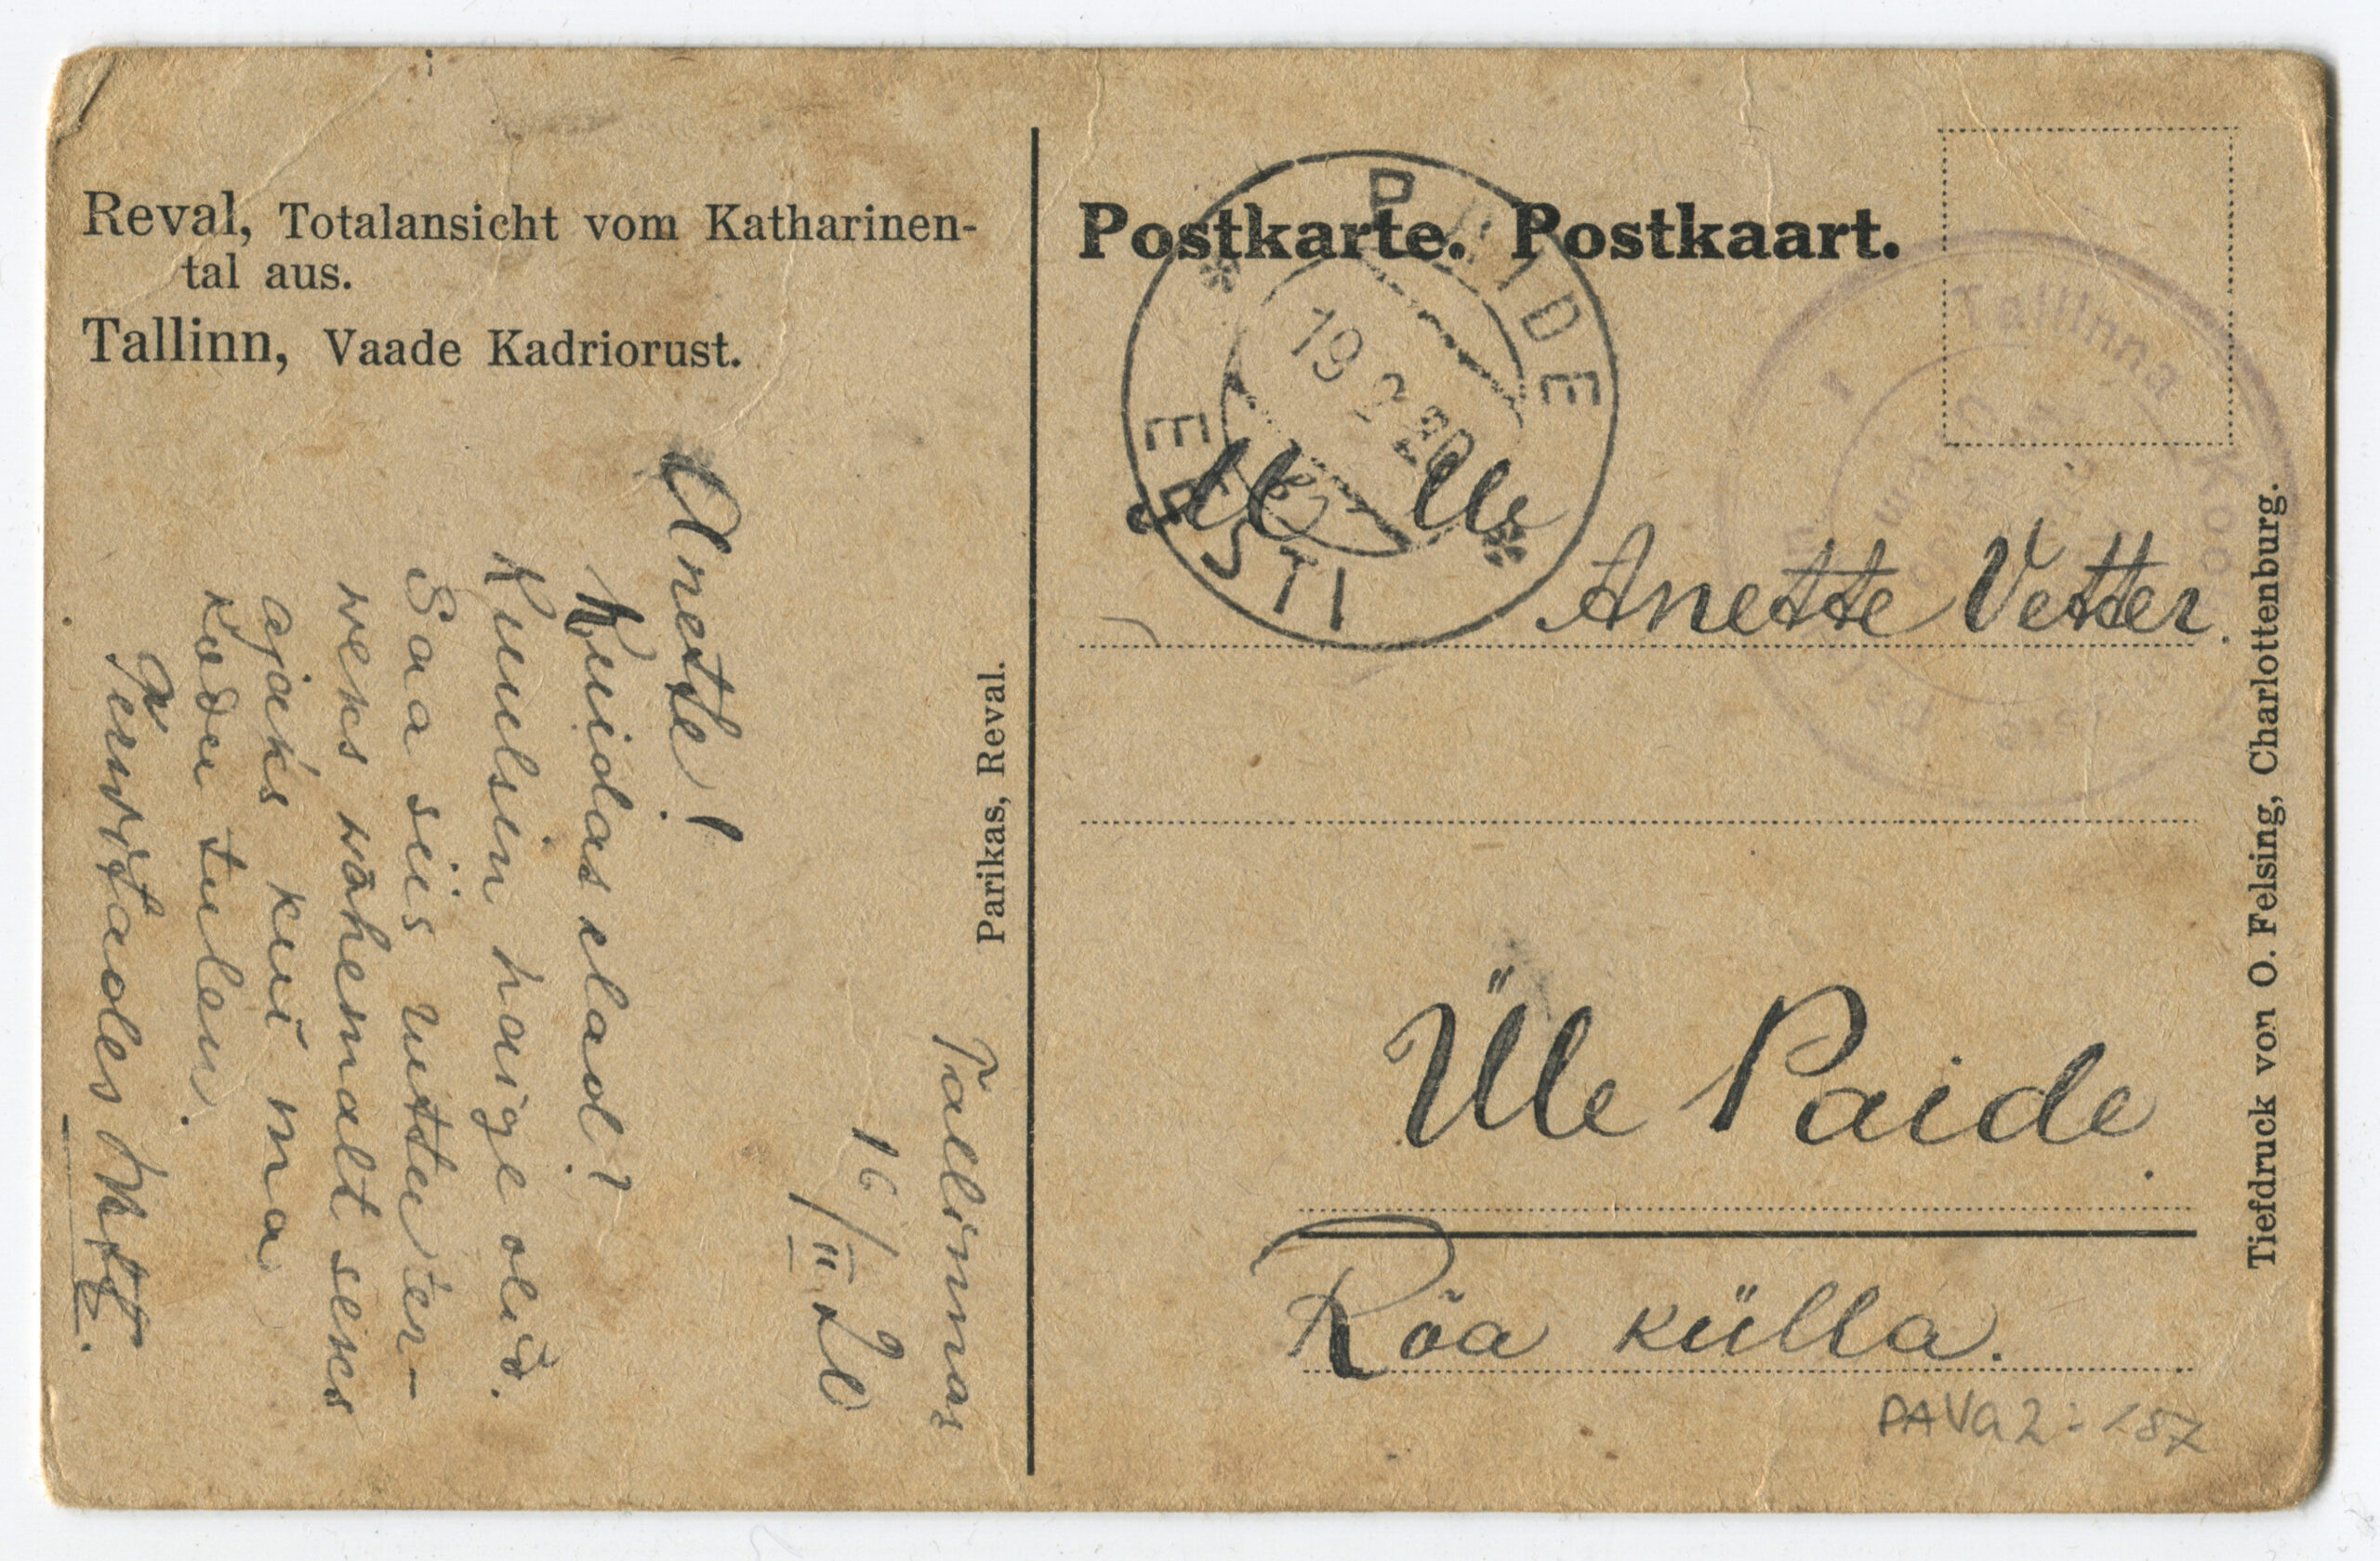 Reval, Totalansicht vom Katharinen-
tal aus.
Tallinn, Vaade Kadriorust.
Parikas, Reval.
Tallinnas
16/II 20
Anette!
Kuidas elad?
Kuulsin haige olid.
Saa siis ruttu ter-
weks wähemalt seks
ajaks kui ma
koðu tulen.
Terwitades
Postkarte. Postkaart.
PAIDE
EESTI
19 2 20
Tallinna Koo
Anette Vetter.
Üle Paide.
Röa külla.
PAVa2:187
Tiefdruck von O. Felsing, Charlottenburg.